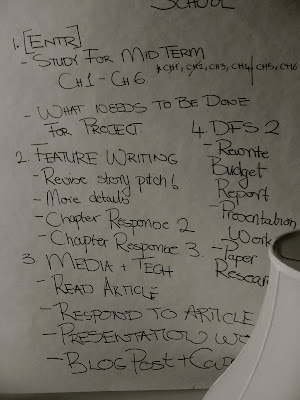 SCHOOL
1. [ENTR]
- STUDY FOR MIDTERM
CH 1 - CH 6. * CH1, CH2, CH3, CH4, CH5, CH6
- WHAT NEEDS TO BE DONE
FOR PROJECT.
2. FEATURE WRITING
- Revise story pitch!
- More details
- Chapter Response 2
- Chapter Response 3.
3. MEDIA + TECH
- READ ARTICLE
- RESPOND TO ARTICLE
- PRESENTATION
- BLOG POST +
4. DFS 2
- Rewrite
Budget
Report
- Presentation
Work
- Paper